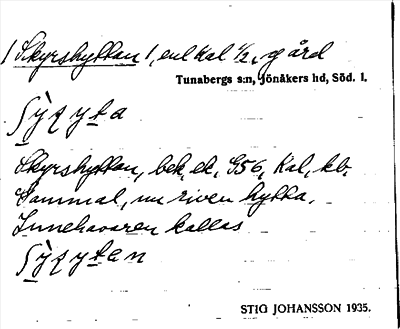 1 Skyrshyttan 1, enl kal 1/2, gård
Tunabergs s:n, Jönåkers hd, Söd. l.
Skyrshyttan, bek, ek, G56, Kal, kb.
Gammal, nu riven hytta.
Innehavaren kallas
STIG JOHANSSON 1935.